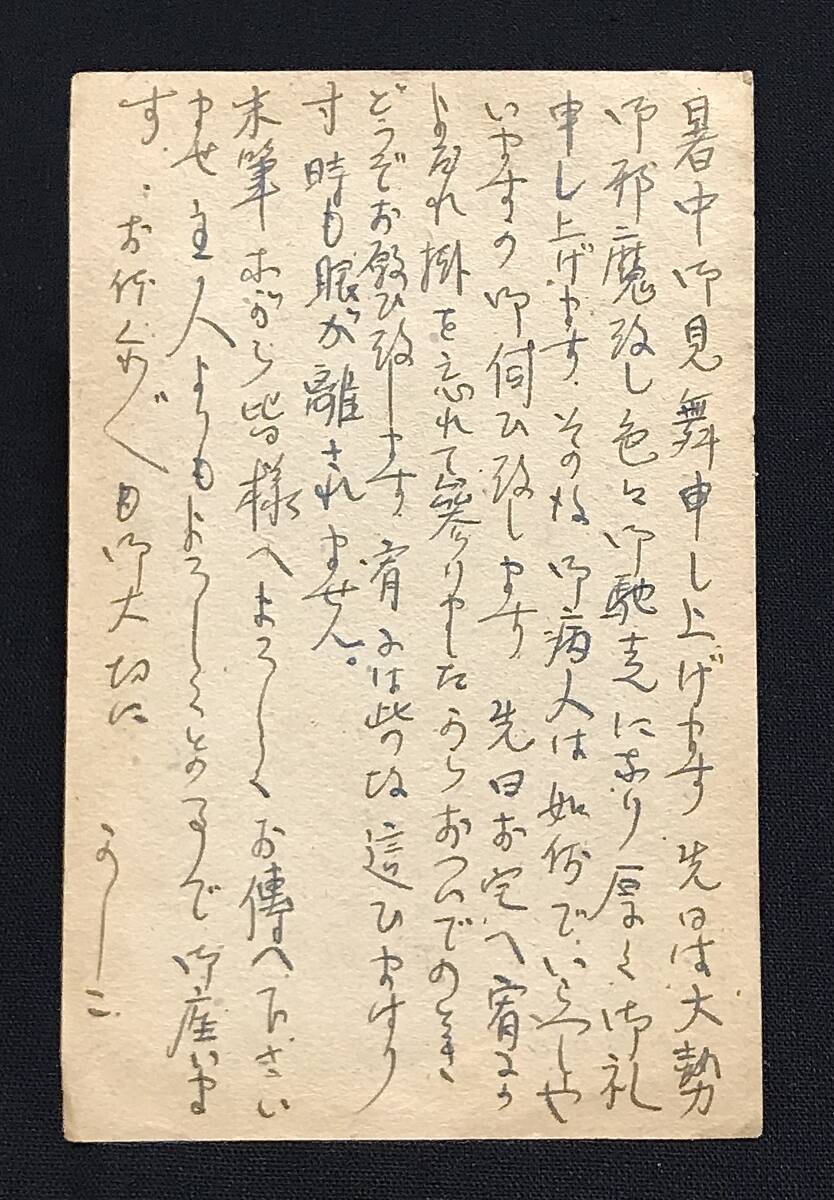 暑中御見舞申し上げます 先日は大勢
御邪魔致し色々御馳走になり厚く御礼
申し上げます、その後御病人は如何でいらつしや
いますか御伺ひ致します 先日お宅へ宥子の
よだれ掛を忘れて参りましたからおついでのとき
どうぞお願ひ致します、宥子は此の頃這ひまはり
寸時も眼が離されません。
末筆ながら皆様へよろしくお傳へ下さい
ませ 主人よりもよろしくとの事で御座いま
す、お体くれ〴〵も御大切に
よし子